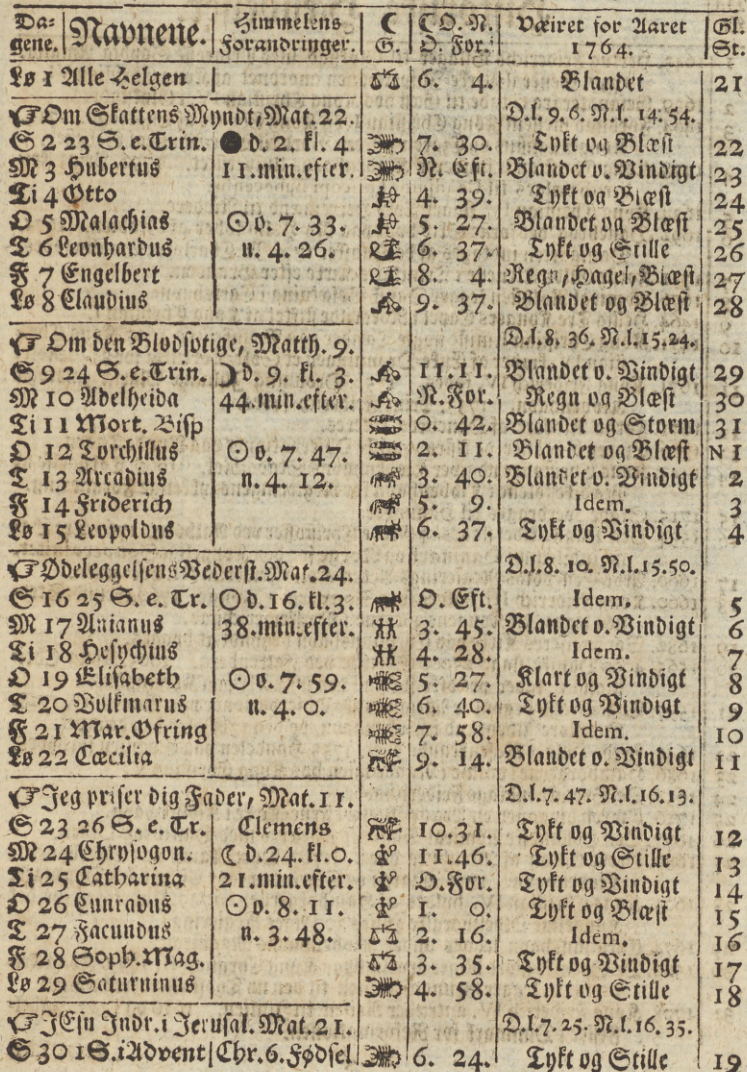 Da= gene. Navnene. Himmelens Forandringer. ☾ G. ☾ O. N. O. For. Væiret for Aaret 1764. Gl. St.
Lø 1 Alle Helgen 6. 4. Blandet 21
☞ Om Skattens Myndt, Mat. 22. D. l. 9. 6. N. l. 14. 54.
S 2 23 S. e. Trin. ● d. 2. kl. 4 7. 30. Tykt og Blæst 22
M 3 Hubertus 11. min. efter. N. Eft. Blandet o. Vindigt 23
Ti 4 Otto 4. 39. Tykt og Blæst 24
O 5 Malachias ☉ o. 7. 33. 5. 27. Blandet og Blæst 25
T 6 Leonhardus n. 4. 26. 6. 37. Tykt og Stille 26
F 7 Engelbert 8. 4. Regn, Hagel, Blæst 27
Lø 8 Claudius 9. 37. Blandet og Blæst 28
☞ Om den Blodsotige, Matth. 9. D. l. 8. 36. N. l. 15. 24.
S 9 24 S. e. Trin. ☽ d. 9. kl. 3. 11. 11. Blandet o. Vindigt 29
M 10 Adelheida 44. min. efter. N. For. Regn og Blæst 30
Ti 11 Mort. Bisp 0. 42. Blandet og Storm 31
O 12 Torchillus ☉ o. 7. 47. 2. 11. Blandet og Blæst N 1
T 13 Arcadius n. 4. 12. 3. 40. Blandet o. Vindigt 2
F 14 Friderich 5. 9. Idem. 3
Lø 15 Leopoldus 6. 37. Tykt og Vindigt 4
☞ Ødeleggelsens Vederst. Mat. 24. D. l. 8. 10. N. l. 15. 50.
S 16 25 S. e. Tr. ○ d. 16. kl. 3. O. Eft. Idem. 5
M 17 Anianus 38. min. efter. 3. 45. Blandet o. Vindigt 6
Ti 18 Hesychius 4. 28. Idem. 7
O 19 Elisabeth ☉ o. 7. 59. 5. 27. Klart og Vindigt 8
T 20 Volkmarus n. 4. 0. 6. 40. Tykt og Vindigt 9
F 21 Mar. Ofring 7. 58. Idem. 10
Lø 22 Cæcilia 9. 14. Blandet o. Vindigt 11
☞ Jeg priser dig Fader, Mat. 11. D. l. 7. 47. N. l. 16. 13.
S 23 26 S. e. Tr. Clemens 10. 31. Tykt og Vindigt 12
M 24 Chrysogon. ☾ d. 24. kl. 0. 11. 46. Tykt og Stille 13
Ti 25 Catharina 21. min. efter. O. For. Tykt og Vindigt 14
O 26 Cunradus ☉ o. 8. 11. 1. 0. Tykt og Blæst 15
T 27 Facundus n. 3. 48. 2. 16. Idem. 16
F 28 Soph. Mag. 3. 35. Tykt og Vindigt 17
Lø 29 Saturninus 4. 58. Tykt og Stille 18
☞ JEsu Indr. i Jerusal. Mat. 21. D. l. 7. 25. N. l. 16. 35.
S 30 1 S. i Advent Chr. 6. Fødsel 6. 24. Tykt og Stille 19